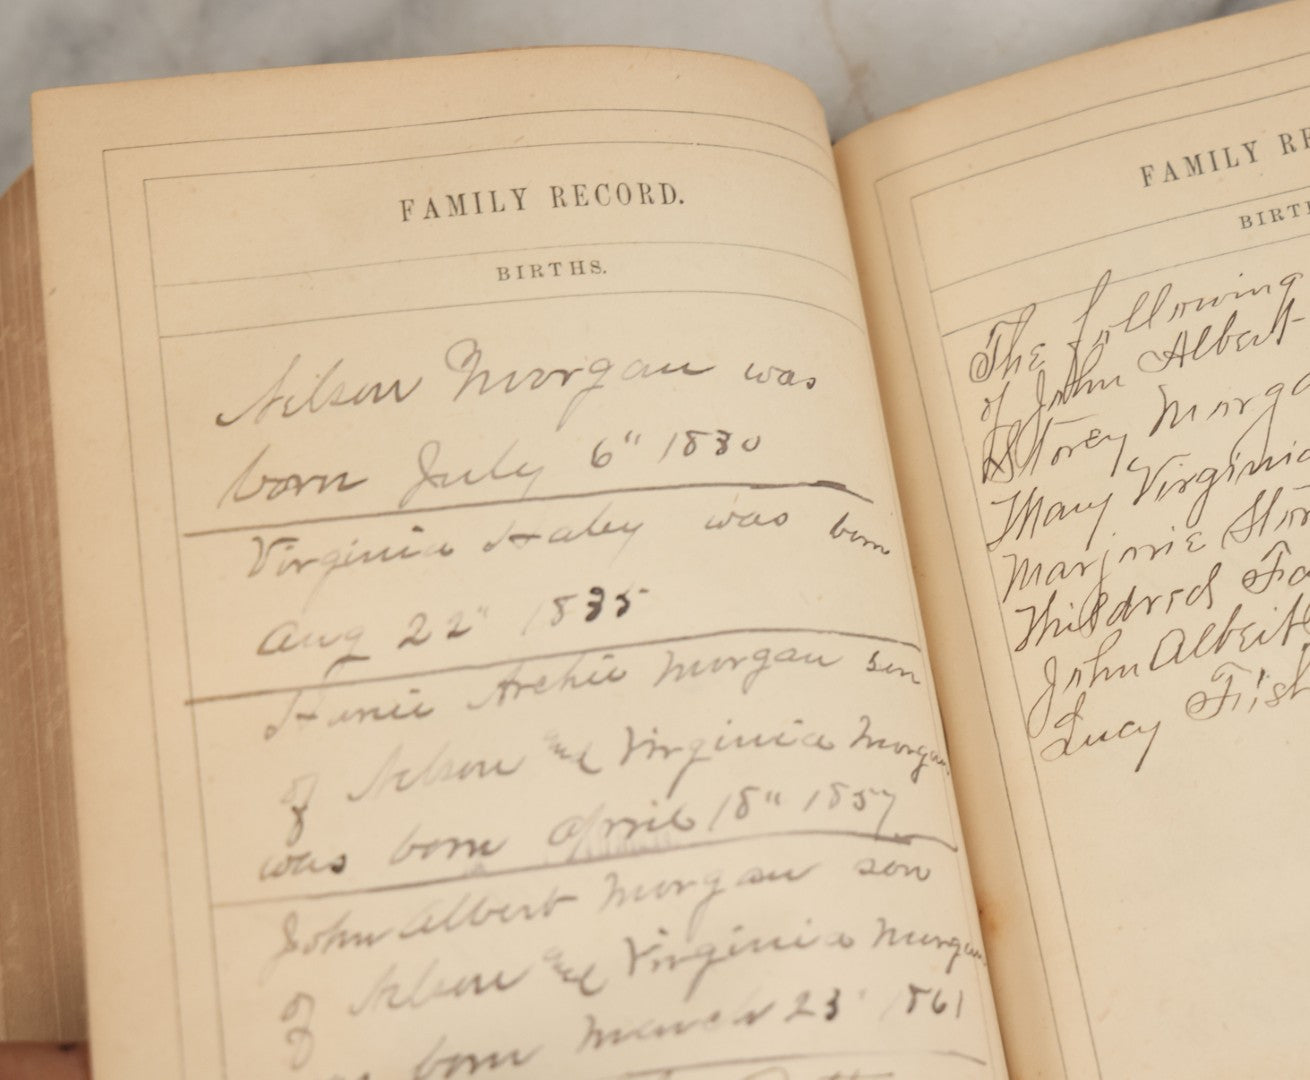 FAMILY RECORD.
BIRTHS.
Nelson Morgan was
born July 6" 1830
Virginia Haley was born
Aug 22" 1835
Archie Morgan son
of Nelson and Virginia Morgan
was born April 18" 1857
John Albert Morgan son
of Nelson and Virginia Morgan
born March 23" 1861
FAMILY RE
BIRTH
The following
of John Albert
Storey Morga
Mary Virginia
Marjorie Stor
Mildred Fa
John Albert
Lucy Fish